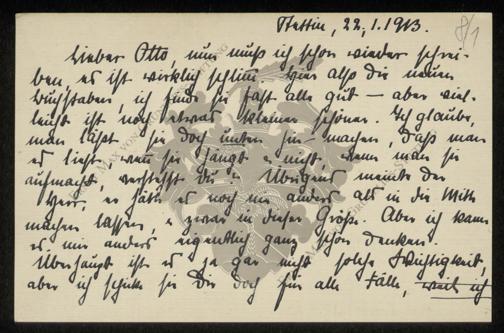 Stettin, 22.1.1913.
8/1
Lieber Otto, nun muß ich schon wieder schrei-
ben, es ist wirklich schlimm. Hier also die neuen
Buchstaben, ich finde sie fast alle gut — aber viel-
leicht ist noch etwas kleiner schöner. Ich glaube,
man läßt sie doch unten hin machen, daß man
es liest wenn sie hängt u. nicht, wenn man sie
aufmacht, verstehst du? Übrigens meinte der
Herr, er hätte es noch nie anders als in die Mitte
machen lassen, u. zwar in dieser Größe. Aber ich kann
es mir anders eigentlich ganz schön denken.
Überhaupt ist es ja gar nicht solche Wichtigkeit,
aber ich schicke sie Dir doch für alle Fälle, weil ich
MAX VON